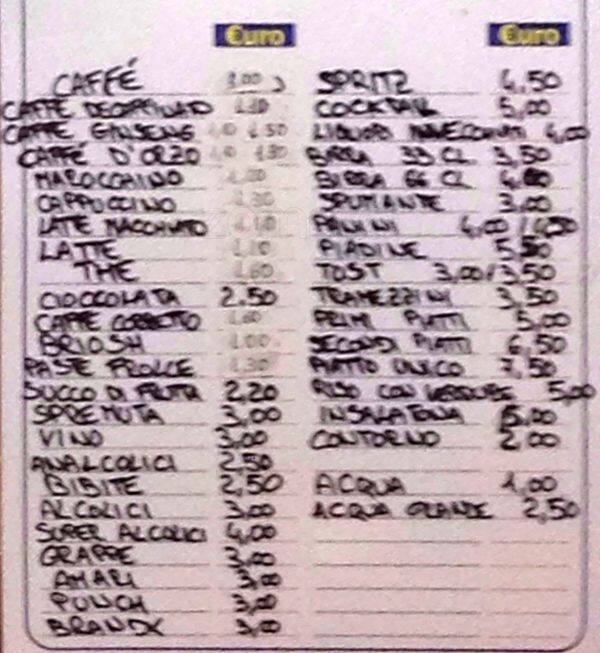 €uro
CAFFÉ 1.00
CAFFÉ DECAFFINATO 1.10
CAFFE GINSENG 1.50
CAFFÉ D'ORZO
MAROCCHINO
CAPPUCCINO 1.30
LATTE MACCHIATO 1.10
LATTE 1.10
THE 1.60
CIOCCOLATA 2.50
CAFFE CORRETTO 1.60
BRIOSH 1.00
PASTE FROLLE 1.30
SUCCO DI FRUTTA 2,20
SPREMUTA 3,00
VINO 3,00
ANALCOLICI 2,50
BIBITE 2,50
ALCOLICI 3,00
SUPER ALCOLICI 4,00
GRAPPE 3,00
AMARI 3,00
PUNCH 3,00
BRANDY 3,00
€uro
SPRITZ 4,50
COCKTAIL 5,00
LIQUORI INVECCHIATI 4,00
BIRRA 33 CL 3,50
BIRRA 66 CL
SPUMANTE 3,00
PANINI 4,00/
PIADINE
TOST 3,00/3,50
TRAMEZZINI 3,50
PRIMI PIATTI 5,00
SECONDI PIATTI 6,50
PIATTO UNICO 7,50
RISO CON VERDURE 5,00
INSALATONA 5,00
CONTORNO 2,00
ACQUA 1,00
ACQUA GRANDE 2,50